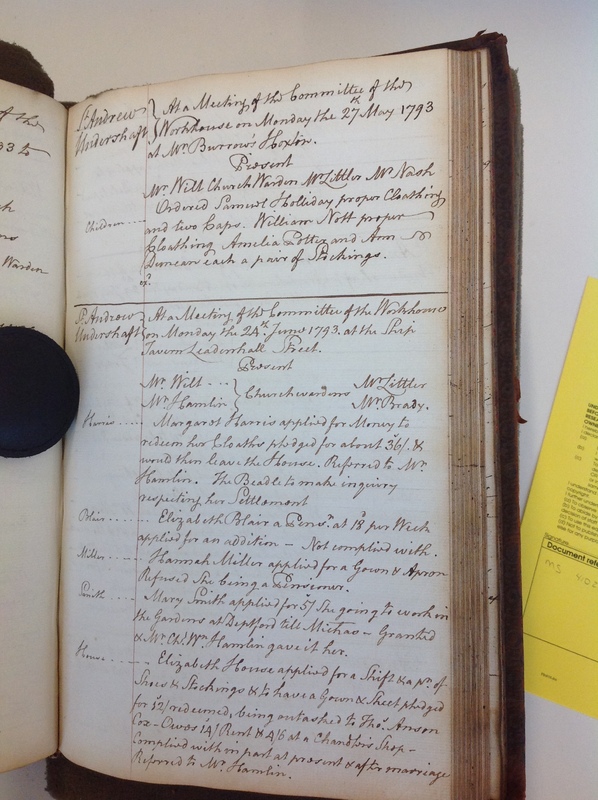 of the
33 to
Warden
St. Andrew Undershaft } At a Meeting of the Committee of the
Workhouse on Monday the 27th May 1793
at Mr. Burrow's Hoxton.
Present
Mr. Wilt Church Warden Mr. Littler Mr. Nash
Children .... Ordered Samuel Holliday proper Cloathing
and two Caps. William Nott proper
Cloathing Amelia Potter and Ann
Duncan each a pair of Stockings.
St. Andrew Undershaft } At a Meeting of the Committee of the Workhouse
on Monday the 24th June 1793. at the Ship
Tavern Leadenhall Street.
Present
Mr. Wilt ... } Churchwardens Mr. Littler
Mr. Hamlin Mr. Brady.
Harris .... Margaret Harris applied for Money to
redeem her Cloaths pledged for about 36/. &
would then leave the House. Referred to Mr.
Hamlin. The Beadle to make inquiry
respecting her Settlement
Blair .... Elizabeth Blair a Pensr. at 18d per Week
applied for an addition — Not complied with.
Miller .... Hannah Miller applied for a Gown & Apron
Refused She being a Pensioner.
Smith .... Mary Smith applied for 5/ She going to work in
the Gardens at Deptford till Michas — Granted
& Mr. Ch. Wn. Hamlin gave it her.
House .... Elizabeth House applied for a Shift & a pr. of
Shoes & Stockings & to have a Gown & Sheet pledged
for 52/ redeemed, being outasked to Thos. Anson
Cox — Owes 14/ Rent & 4/6 at a Chandlers Shop —
Complied with in part at present & after marriage
Referred to Mr. Hamlin.
Signature
Document refe
MS 402